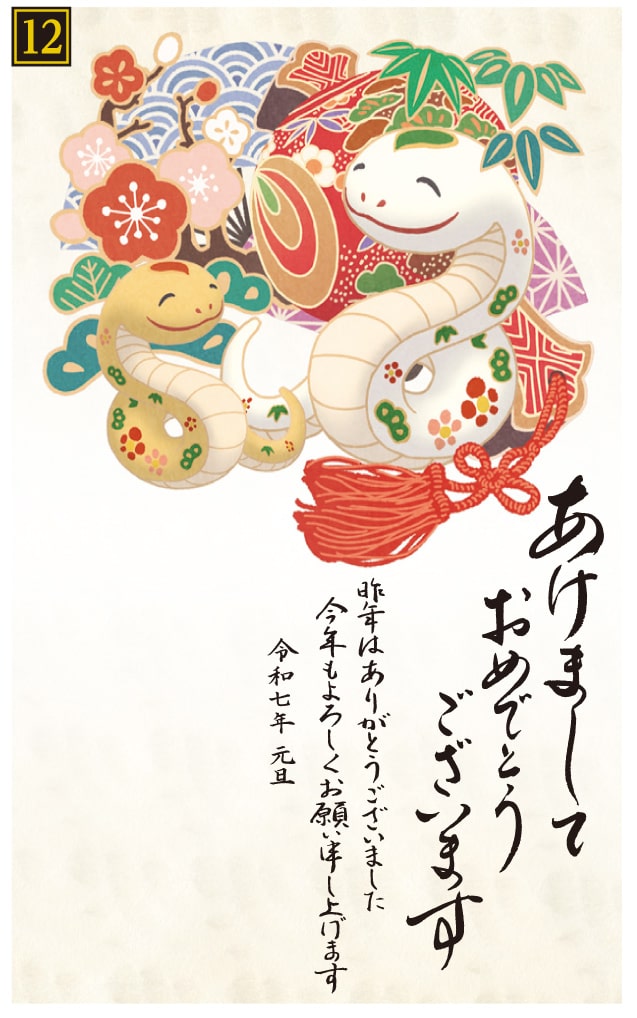 12
あけまして
おめでとう
ございます
昨年はありがとうございました
今年もよろしくお願い申し上げます
令和七年 元旦